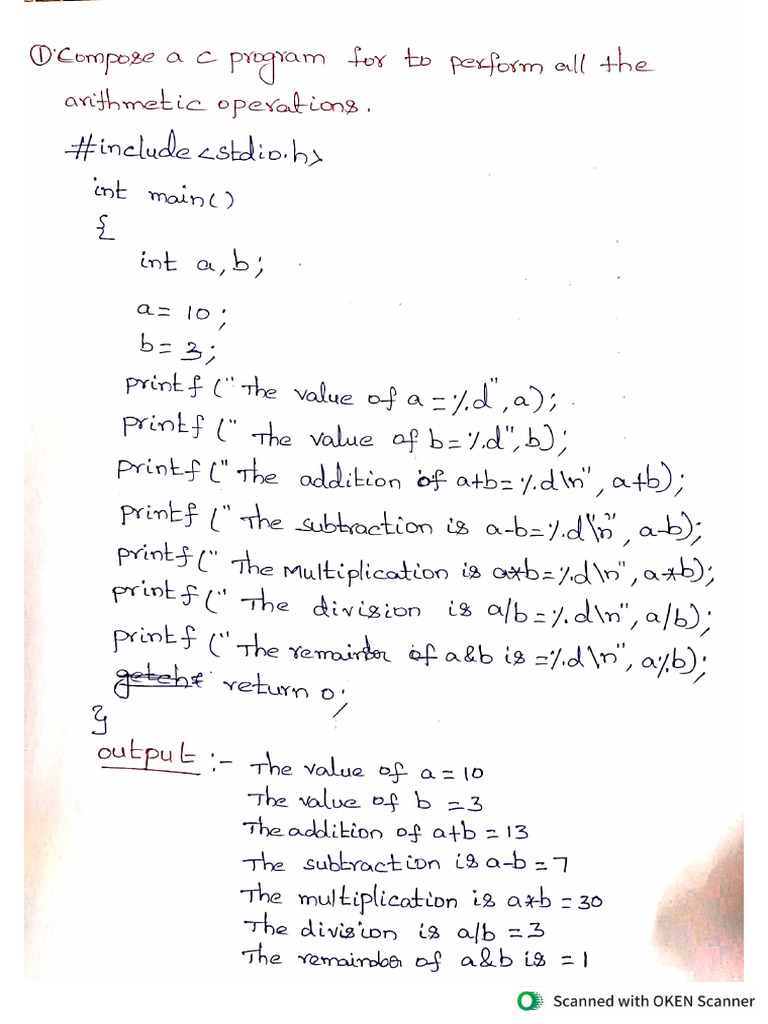 ①. Compose a c program for to perform all the
arithmetic operations.
#include<stdio.h>
int main()
{
int a,b;
a= 10;
b= 3;
printf ("The value of a =%d", a);
printf (" The value of b=%d", b);
printf (" The addition of a+b=%d\n", a+b);
printf (" The subtraction is a-b=%d\n", a-b);
printf (" The Multiplication is a*b=%d\n", a*b);
printf (" The division is a/b=%d\n", a/b);
printf (" The remaindor of a&b is =%d\n", a%b);
return 0;
}
output :- The value of a = 10
The value of b = 3
The addition of a+b = 13
The subtraction is a-b = 7
The multiplication is a*b = 30
The division is a/b = 3
The remaindor of a&b is = 1
Scanned with OKEN Scanner